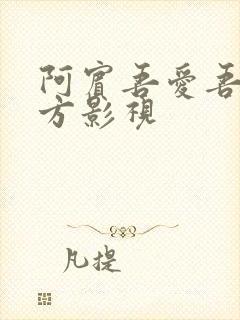 阿賓吾愛吾
方影視
凡提